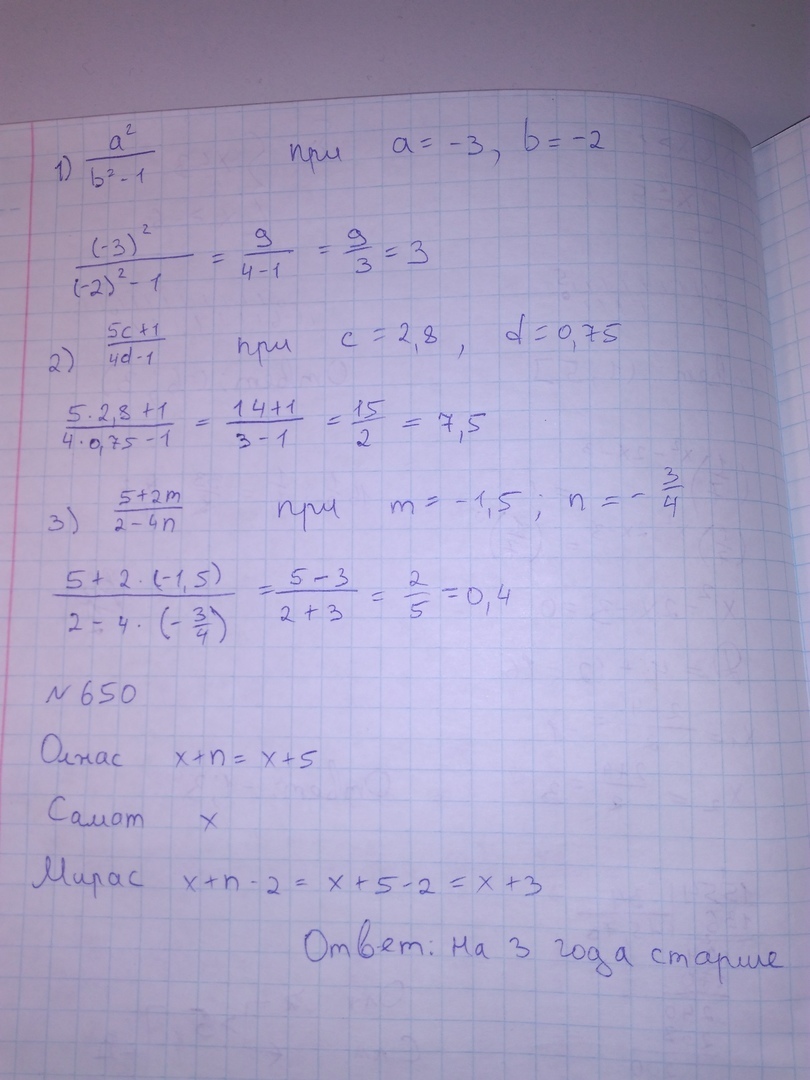 1) a²/(b²-1) при a = -3, b = -2
(-3)²/((-2)²-1) = 9/(4-1) = 9/3 = 3
2) (5c+1)/(4d-1) при c = 2,8, d = 0,75
(5·2,8+1)/(4·0,75-1) = (14+1)/(3-1) = 15/2 = 7,5
3) (5+2m)/(2-4n) при m = -1,5; n = -3/4
(5+2·(-1,5))/(2-4·(-3/4)) = (5-3)/(2+3) = 2/5 = 0,4
№650
Олнас x+n = x+5
Самат x
Мирас x+n-2 = x+5-2 = x+3
Ответ: на 3 года старше